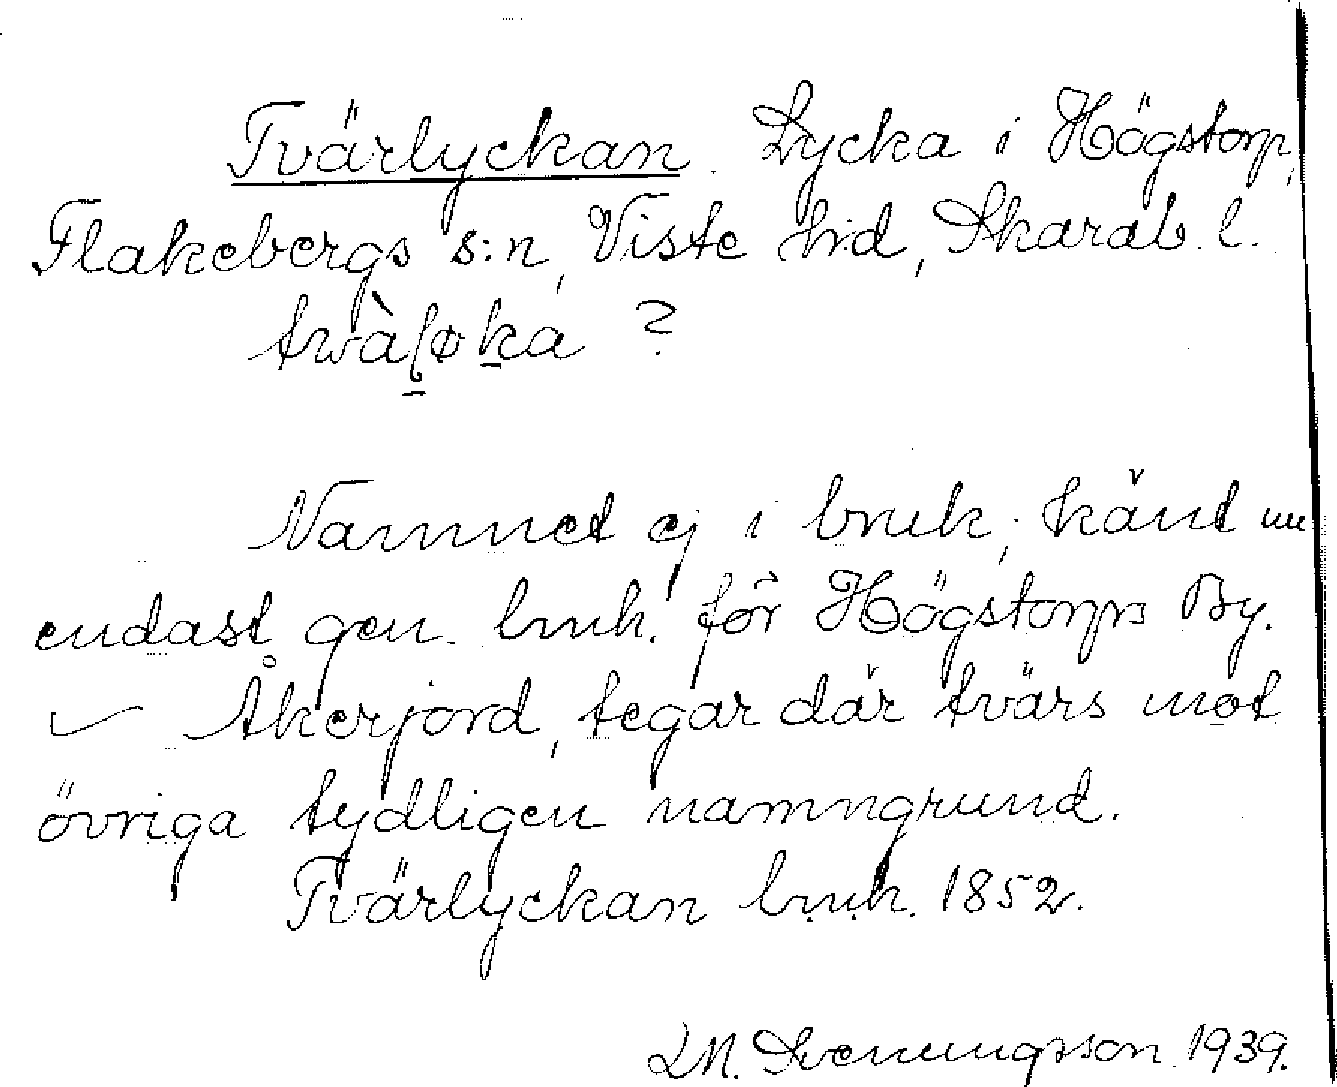 Tvärlyckan. Lycka i Högstorp,
Flakebergs s:n, Viste hd, Skarab. l.
?
Namnet ej i bruk; känt nu
endast gen. bruk. för Högstorps By.
Åkerjord, tegar där tvärs mot
övriga tydligen namngrund.
Tvärlyckan bruk. 1852.
Svenungsson 1939.